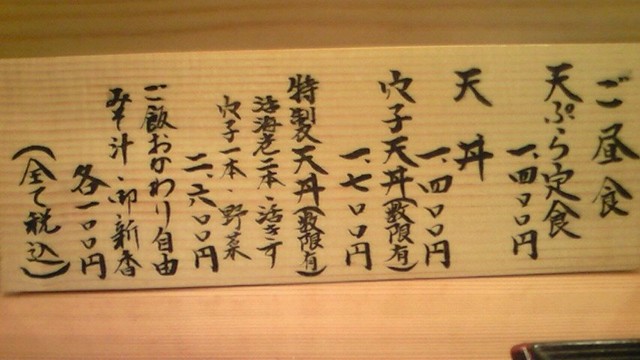 ご昼食
天ぷら定食
一、四〇〇円
天丼
一、四〇〇円
穴子天丼(数限有)
一、七〇〇円
特製天丼(数限有)
活海老二本・活きす
穴子一本・野菜
二、六〇〇円
ご飯おかわり自由
みそ汁・御新香
各一〇〇円
(全て税込)